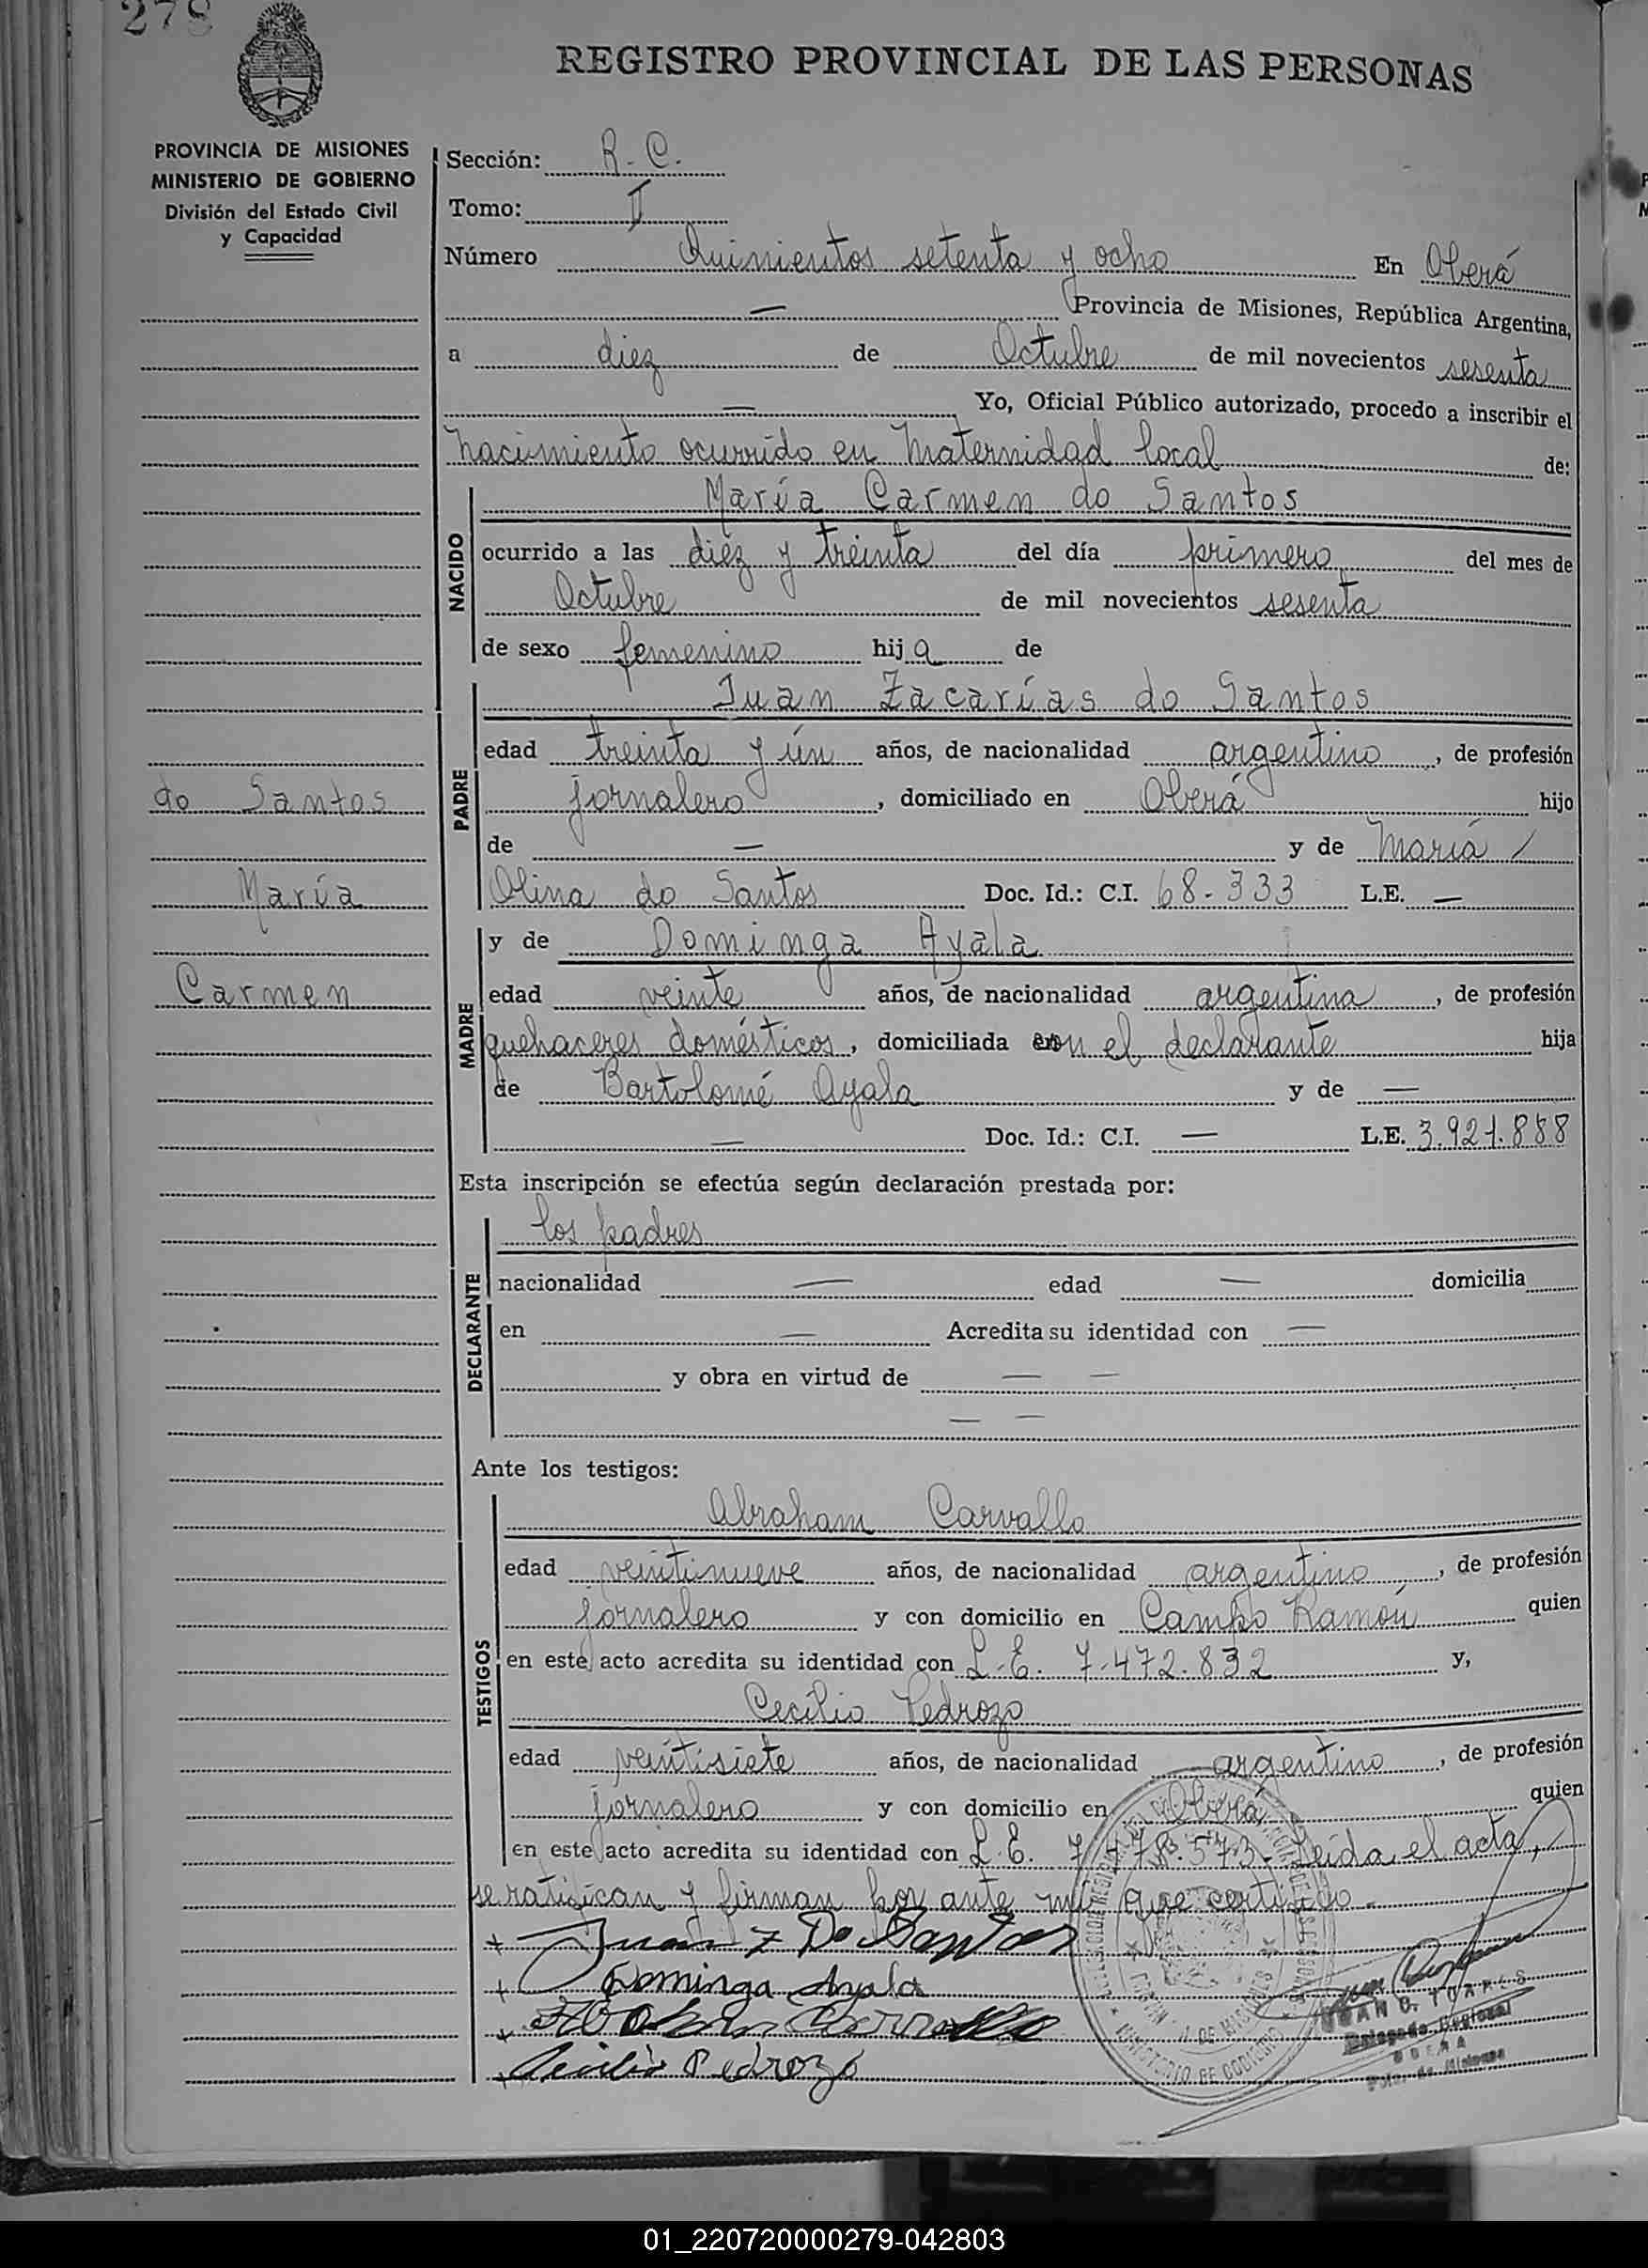 278
REGISTRO PROVINCIAL DE LAS PERSONAS
PROVINCIA DE MISIONES
MINISTERIO DE GOBIERNO
División del Estado Civil
y Capacidad
Sección: R. C.
Tomo: II
Número Quinientos setenta y ocho En Oberá
— Provincia de Misiones, República Argentina,
a diez de Octubre de mil novecientos sesenta
— Yo, Oficial Público autorizado, procedo a inscribir el
nacimiento ocurrido en Maternidad local de:
NACIDO
María Carmen do Santos
ocurrido a las diéz y treinta del día primero del mes de
Octubre de mil novecientos sesenta
de sexo femenino hija de
PADRE
Juan Zacarías do Santos
edad treinta y ún años, de nacionalidad argentino, de profesión
jornalero, domiciliado en Oberá hijo
de — y de María /
Olina do Santos Doc. Id.: C.I. 68-333 L.E. —
do Santos
María
Carmen
MADRE
y de Dominga Ayala
edad veinte años, de nacionalidad argentina, de profesión
quehaceres domésticos, domiciliada con el declarante hija
de Bartolomé Ayala y de —
— Doc. Id.: C.I. — L.E. 3.921.888
Esta inscripción se efectúa según declaración prestada por:
DECLARANTE
los padres
nacionalidad — edad — domicilia
en — Acredita su identidad con —
y obra en virtud de — —
— —
Ante los testigos:
TESTIGOS
Abraham Carvallo
edad veintinueve años, de nacionalidad argentino, de profesión
jornalero y con domicilio en Campo Ramón quien
en este acto acredita su identidad con L.E. 7.472.832 y,
Cecilio Pedrozo
edad veintisiete años, de nacionalidad argentino, de profesión
jornalero y con domicilio en Oberá quien
en este acto acredita su identidad con L.E. 7.478.573- Leida el acta,
se ratifican y firman por ante mí que certifico.-
+ Juan Z Do Santos
+ Dominga Ayala
+ Carvallo
+ Cecilio Pedrozo
MINISTERIO DE GOBIERNO
Delegado Regional
OBERA
01_220720000279-042803